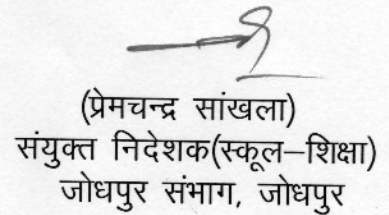 (प्रेमचन्द्र सांखला)
संयुक्त निदेशक(स्कूल–शिक्षा)
जोधपुर संभाग, जोधपुर